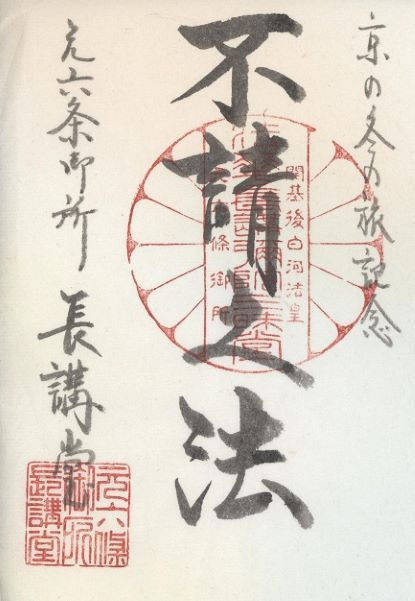 京の冬の旅記念
不請之法
元六条御所 長講堂
開基後白河法皇
六條御所
元六條
御所
長講堂